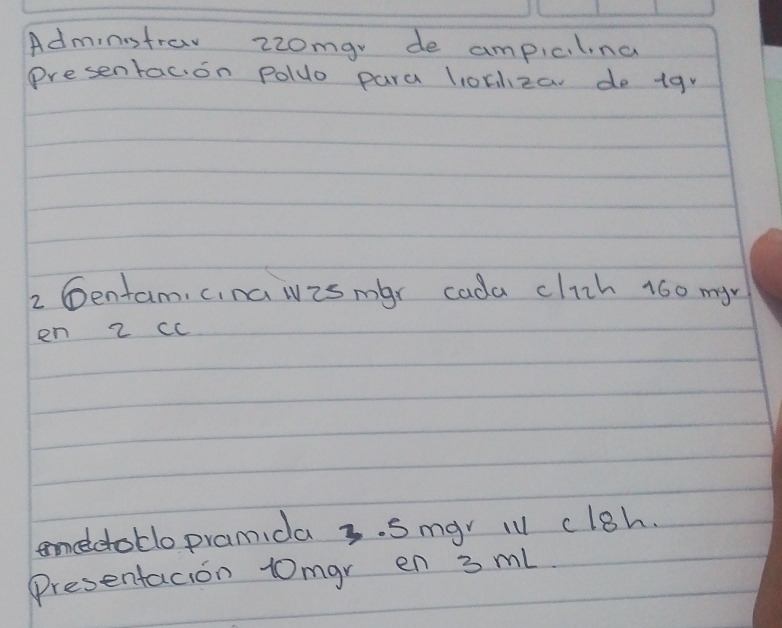 Administrar 220mgr de ampicilina
Presentación Polvo para liofilizar de 1gr
2 Gentamicina IV 25 mgr cada c/12h 160 mgr
en 2 cc
metoclopramida 3.5 mgr IV c/8h.
Presentación 10mgr en 3 mL.